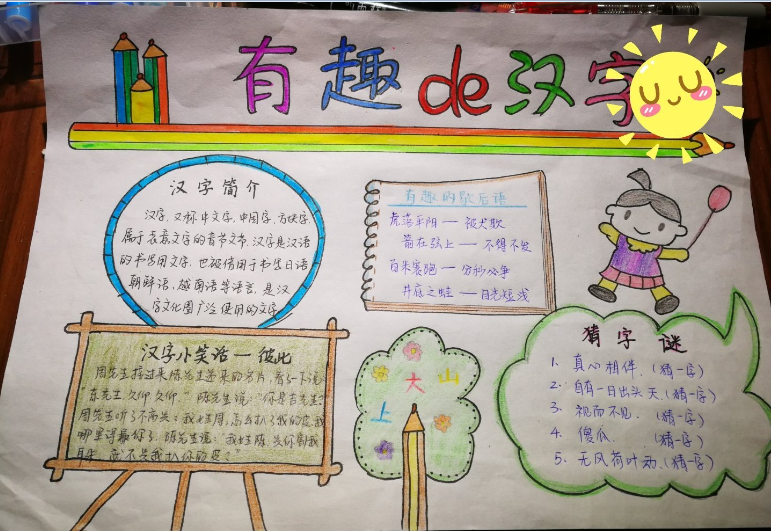 有趣de汉字
汉字简介
汉字,又称中文字、中国字、方块字,
属于表意文字的音节文字,汉字是汉语
的书写用文字,也被借用于书写日语
朝鲜语、越南语等语言,是汉
字文化圈广泛使用的文字
有趣的歇后语
虎落平阳——被犬欺
箭在弦上——不得不发
百米赛跑——分秒必争
井底之蛙——目光短浅
汉字小笑话一彼此
周先生接过来陈先生递来的名片,看了一下说
“东先生,久仰久仰。”陈先生说:“你是吉先生”
周先生听了不高兴:我姓周,怎么扒了我的皮
哪里得罪你了 陈先生说:我姓陈
山
大
上
猜字谜
1、真心相伴.(猜一字)
2、自有一日出头天.(猜一字)
3、视而不见.(猜一字)
4、傻瓜.(猜一字)
5、无风荷叶动.(猜一字)